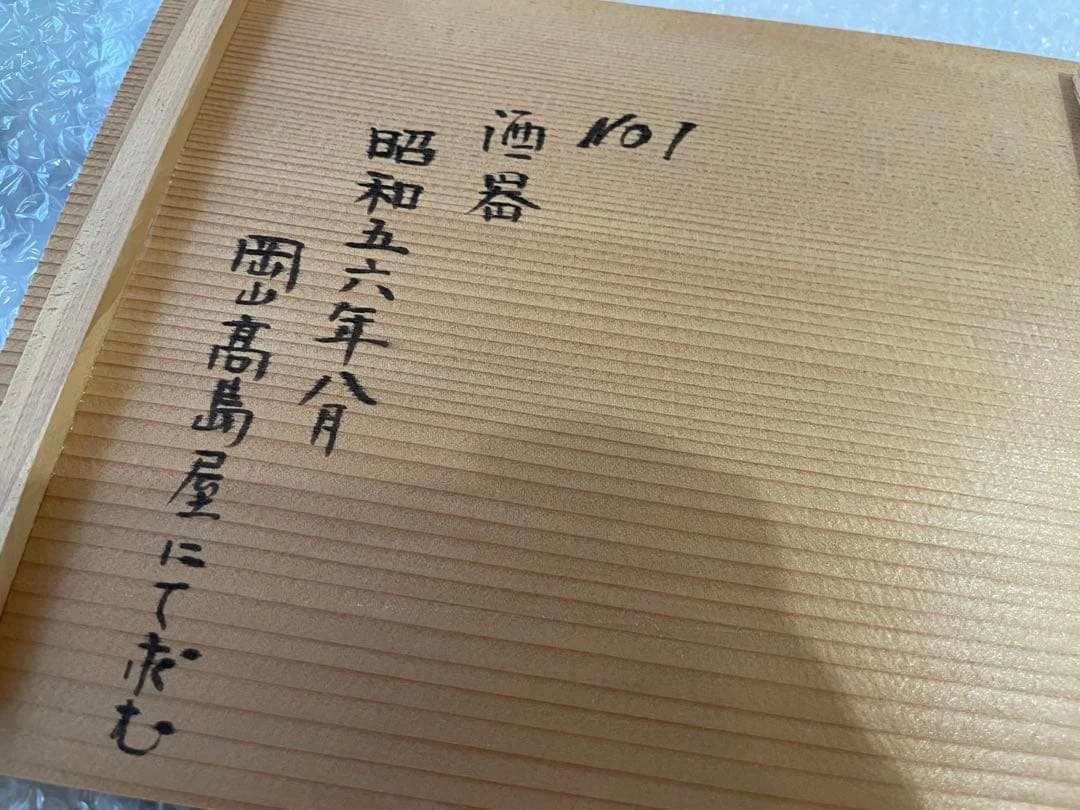 No1
酒器
昭和五六年八月
岡山高島屋にて求む